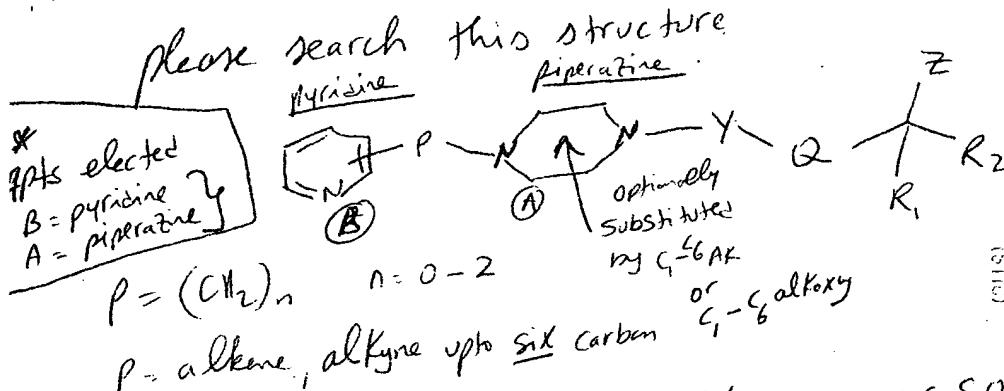 please search this structure
pyridine piperazine
* 
elected
B = pyridine
A = piperazine
N P N N Y Q Z R1 R2
B A
optionally
substituted
by C1-C6 AK
or
C1-C6 alkoxy
P = (CH2)n n = 0-2
P = alkene, alkyne upto six carbon